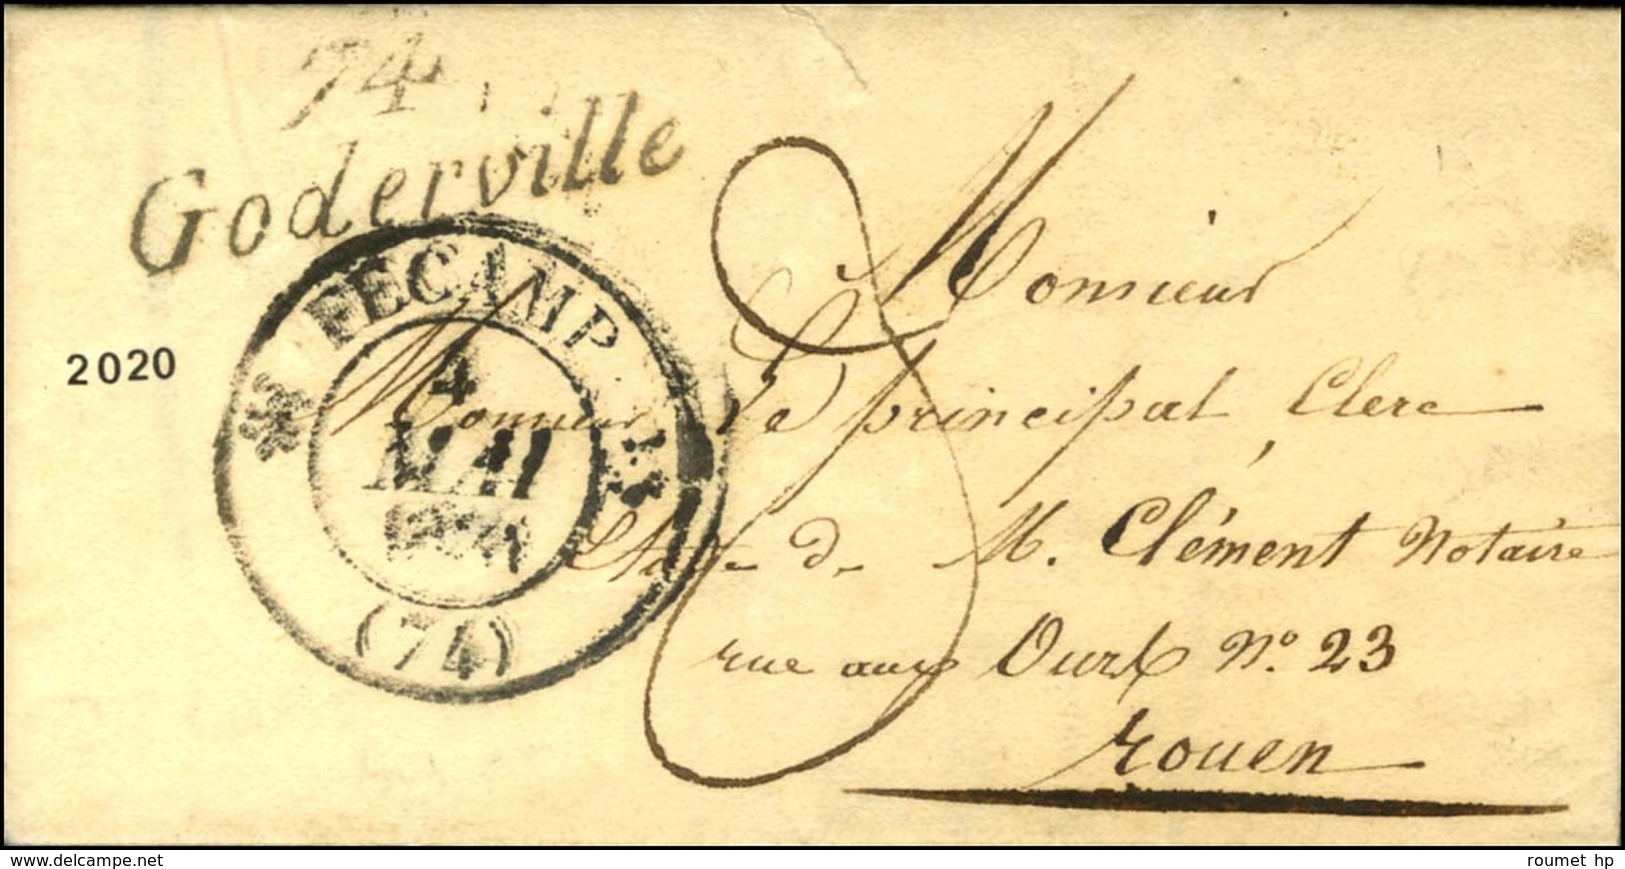 74
Goderville
FECAMP
4
MAI
(74)
2020
Monsieur
Monsieur Le principal Clerc
de M. Clément Notaire
rue aux Ours N.º 23
Rouen
www.delcampe.net
roumet hp